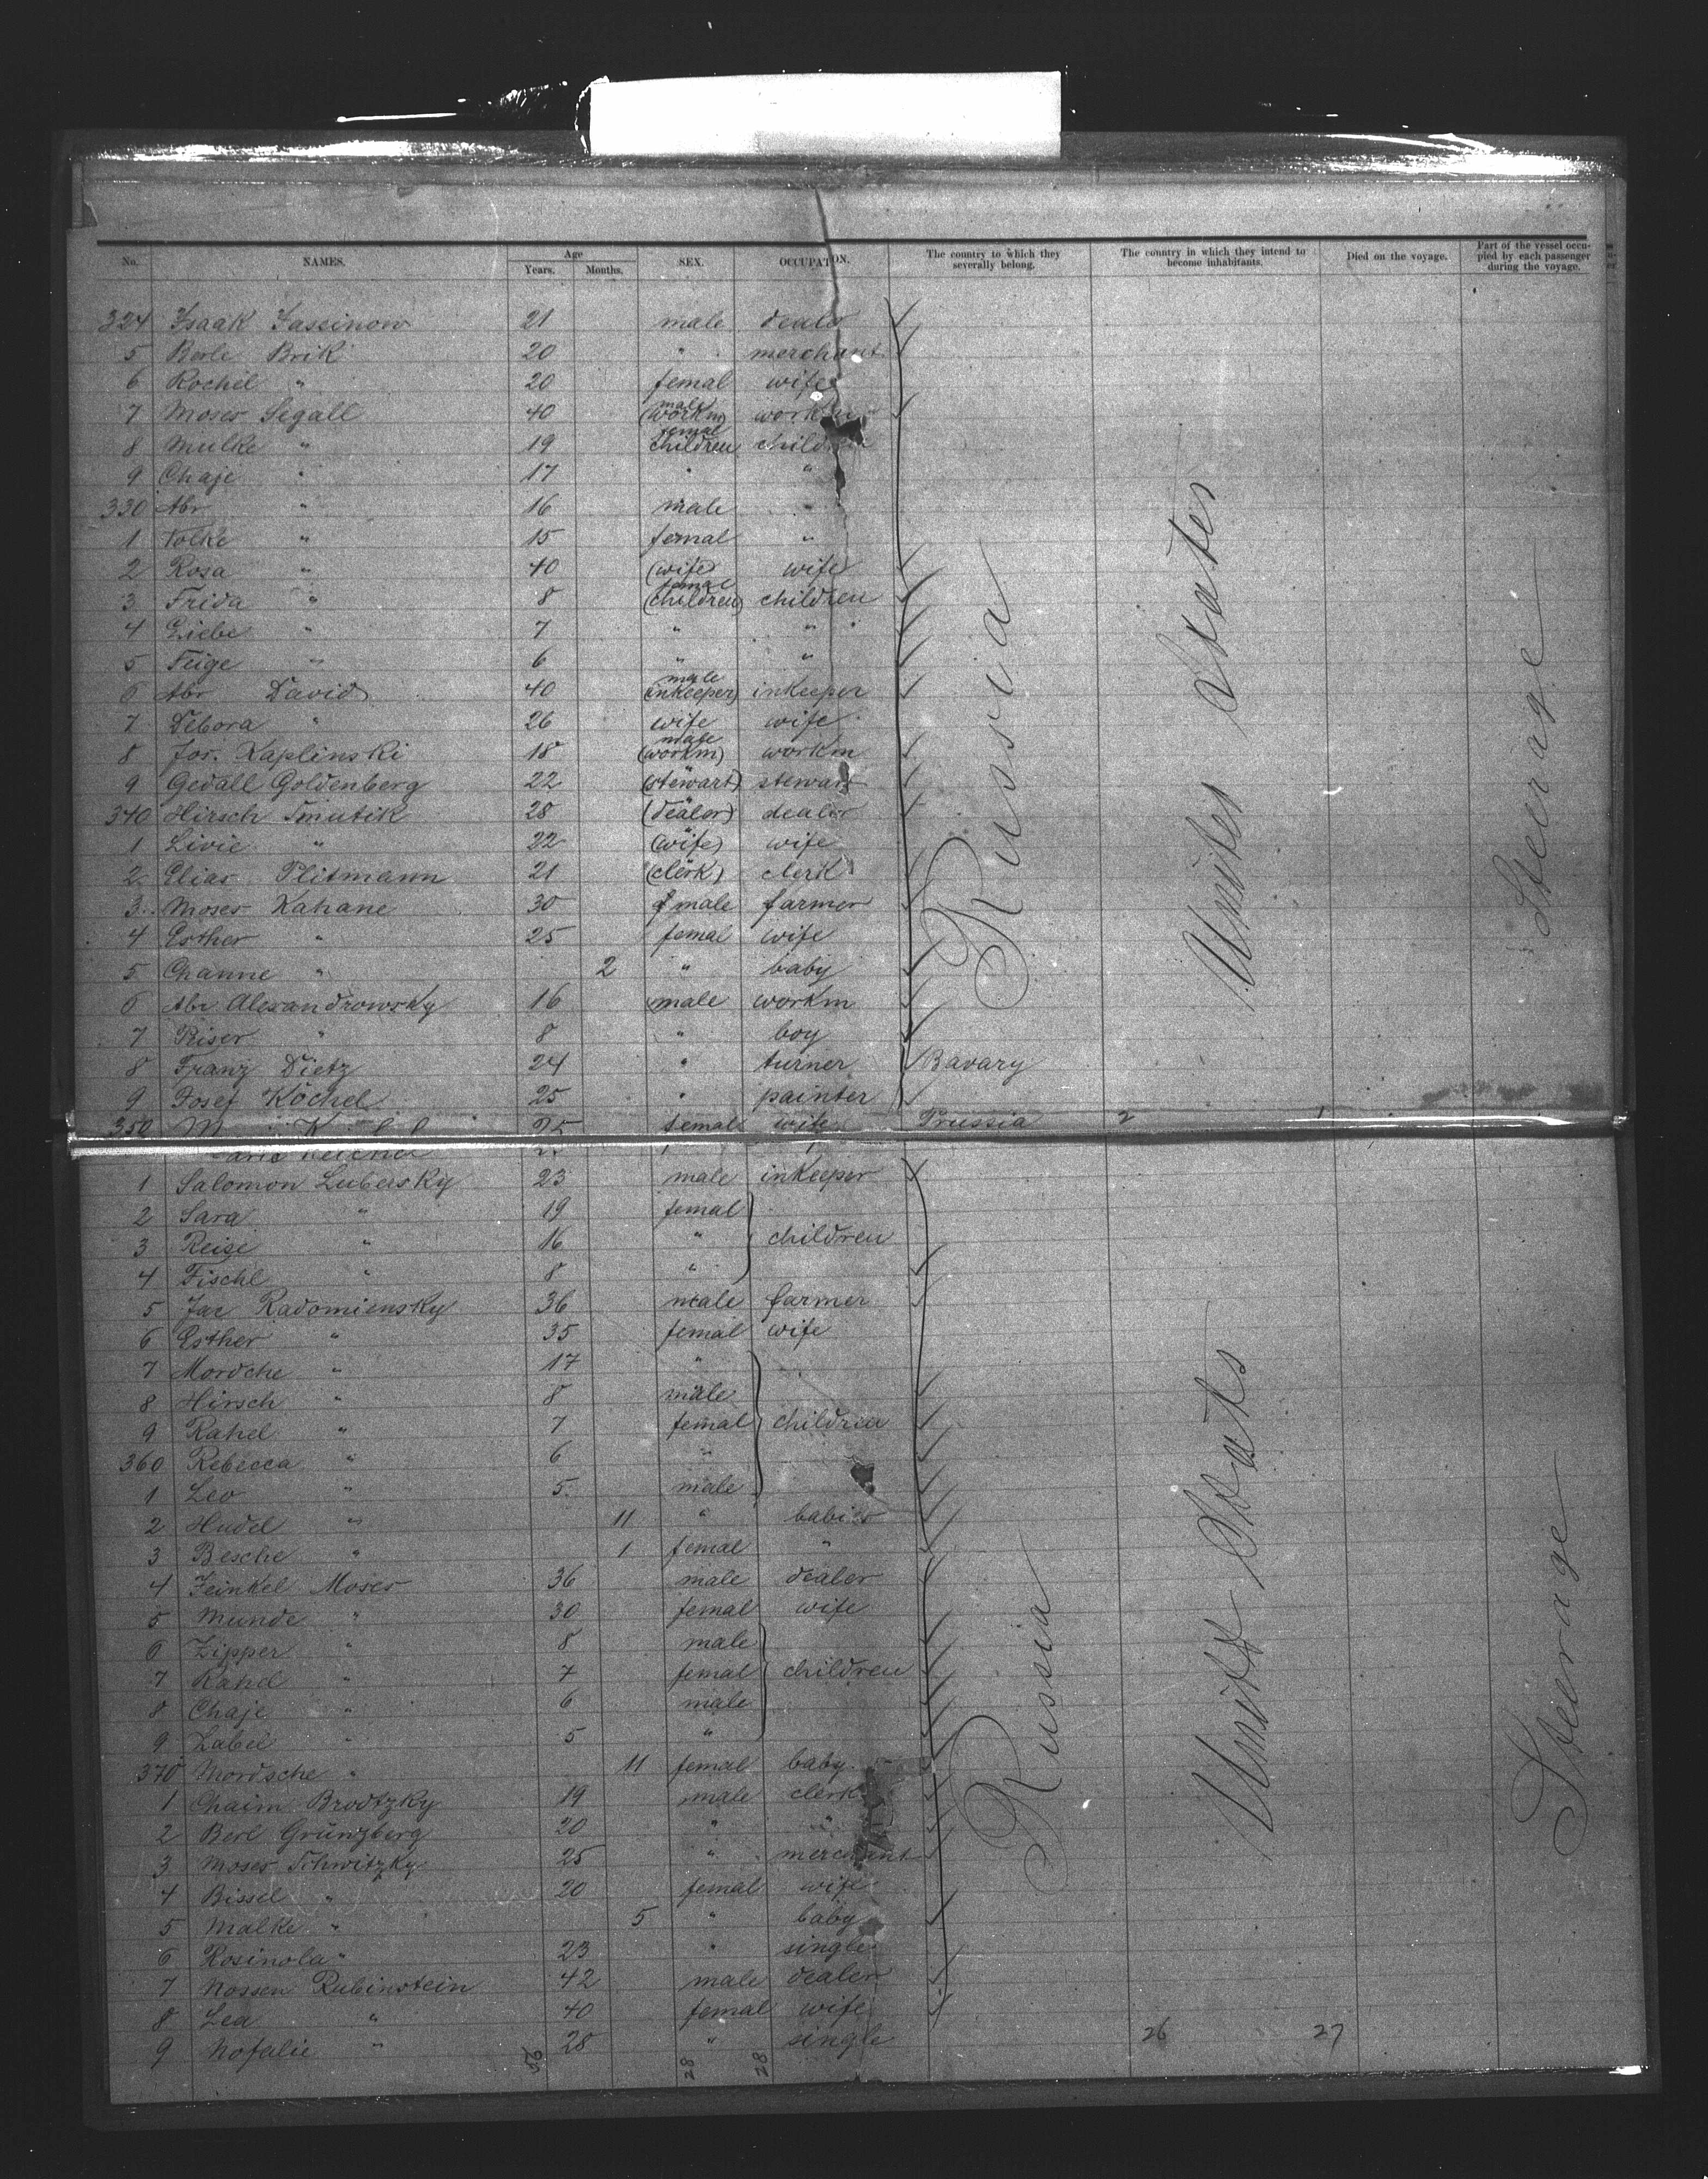 No. NAMES. Age Years. Months. SEX. OCCUPATION. The country to which they severally belong. The country in which they intend to become inhabitants. Died on the voyage. Part of the vessel occupied by each passenger during the voyage.
324 Isaak 21 male dealer
5 Berle Brik 20 " merchant
6 Rochel " 20 femal wife
7 Moses Segall 40 male (workm) workm
8 Mulke " 19 femal children children
9 Chaje " 17 " "
330 Abr " 16 male "
1 Tolke " 15 femal "
2 Rosa " 40 (wife) wife
3 Frida " 8 femal (children) children
4 Liebe " 7 " "
5 Feige " 6 " "
6 Abr David 40 male (inkeeper) inkeeper
7 Debora " 26 wife wife
8 Jos. Kaplinski 18 male (workm) workm
9 Gedall Goldenberg 22 (stewart) stewart
340 Hirsch Smutik 28 (dealer) dealer
1 Livie " 22 (wife) wife
2 Elias Plitmann 21 (clerk) clerk
3 Moses Kahane 30 male farmer
4 Esther " 25 femal wife
5 Channe " 2 " baby
6 Abr Alexandrowsky 16 male workm
7 Riser " 8 " boy
8 Franz Dietz 24 " turner Bavary
9 Josef Köchel 25 " painter
Russia
United States
Steerage
350 25 femal wife Prussia 2 1
1 Salomon Lubersky 23 male inkeeper
2 Sara " 19 femal
3 Reise " 16 " children
4 Fischl " 8 "
5 Radomiensky 36 male farmer
6 Esther " 35 femal wife
7 Mordche " 17 "
8 Hirsch " 8 male
9 Rahel " 7 femal children
360 Rebecca " 6 "
1 Leo " 5 male
2 Hudel " 11 " babies
3 Besche " 1 femal "
4 Feinkel Moses 36 male dealer
5 Munde " 30 femal wife
6 Zipper " 8 male
7 Rahel " 7 femal children
8 Chaje " 6 male
9 Label " 5 "
370 Mordsche " 11 femal baby
1 Chaim Brodtzky 19 male clerk
2 Berl Grünzberg 20 " "
3 Moses Schwitzky 25 " merchant
4 Bissel " 20 femal wife
5 Malke " 5 " baby
6 Rosinola " 23 " single
7 Nossen Rubinstein 42 male dealer
8 Lea " 40 femal wife
9 Nofalie " 28 " single
Russia
Unitet Stats
Steerage
28 28 26 27